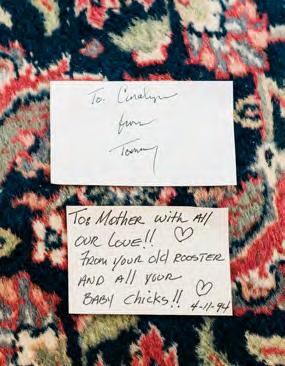 To: Carolyn
from
Tommy
To: Mother with All
OUR LOVE!! ♡
From your old ROOSTER
AND All your
BABY Chicks!! ♡
4-11-94